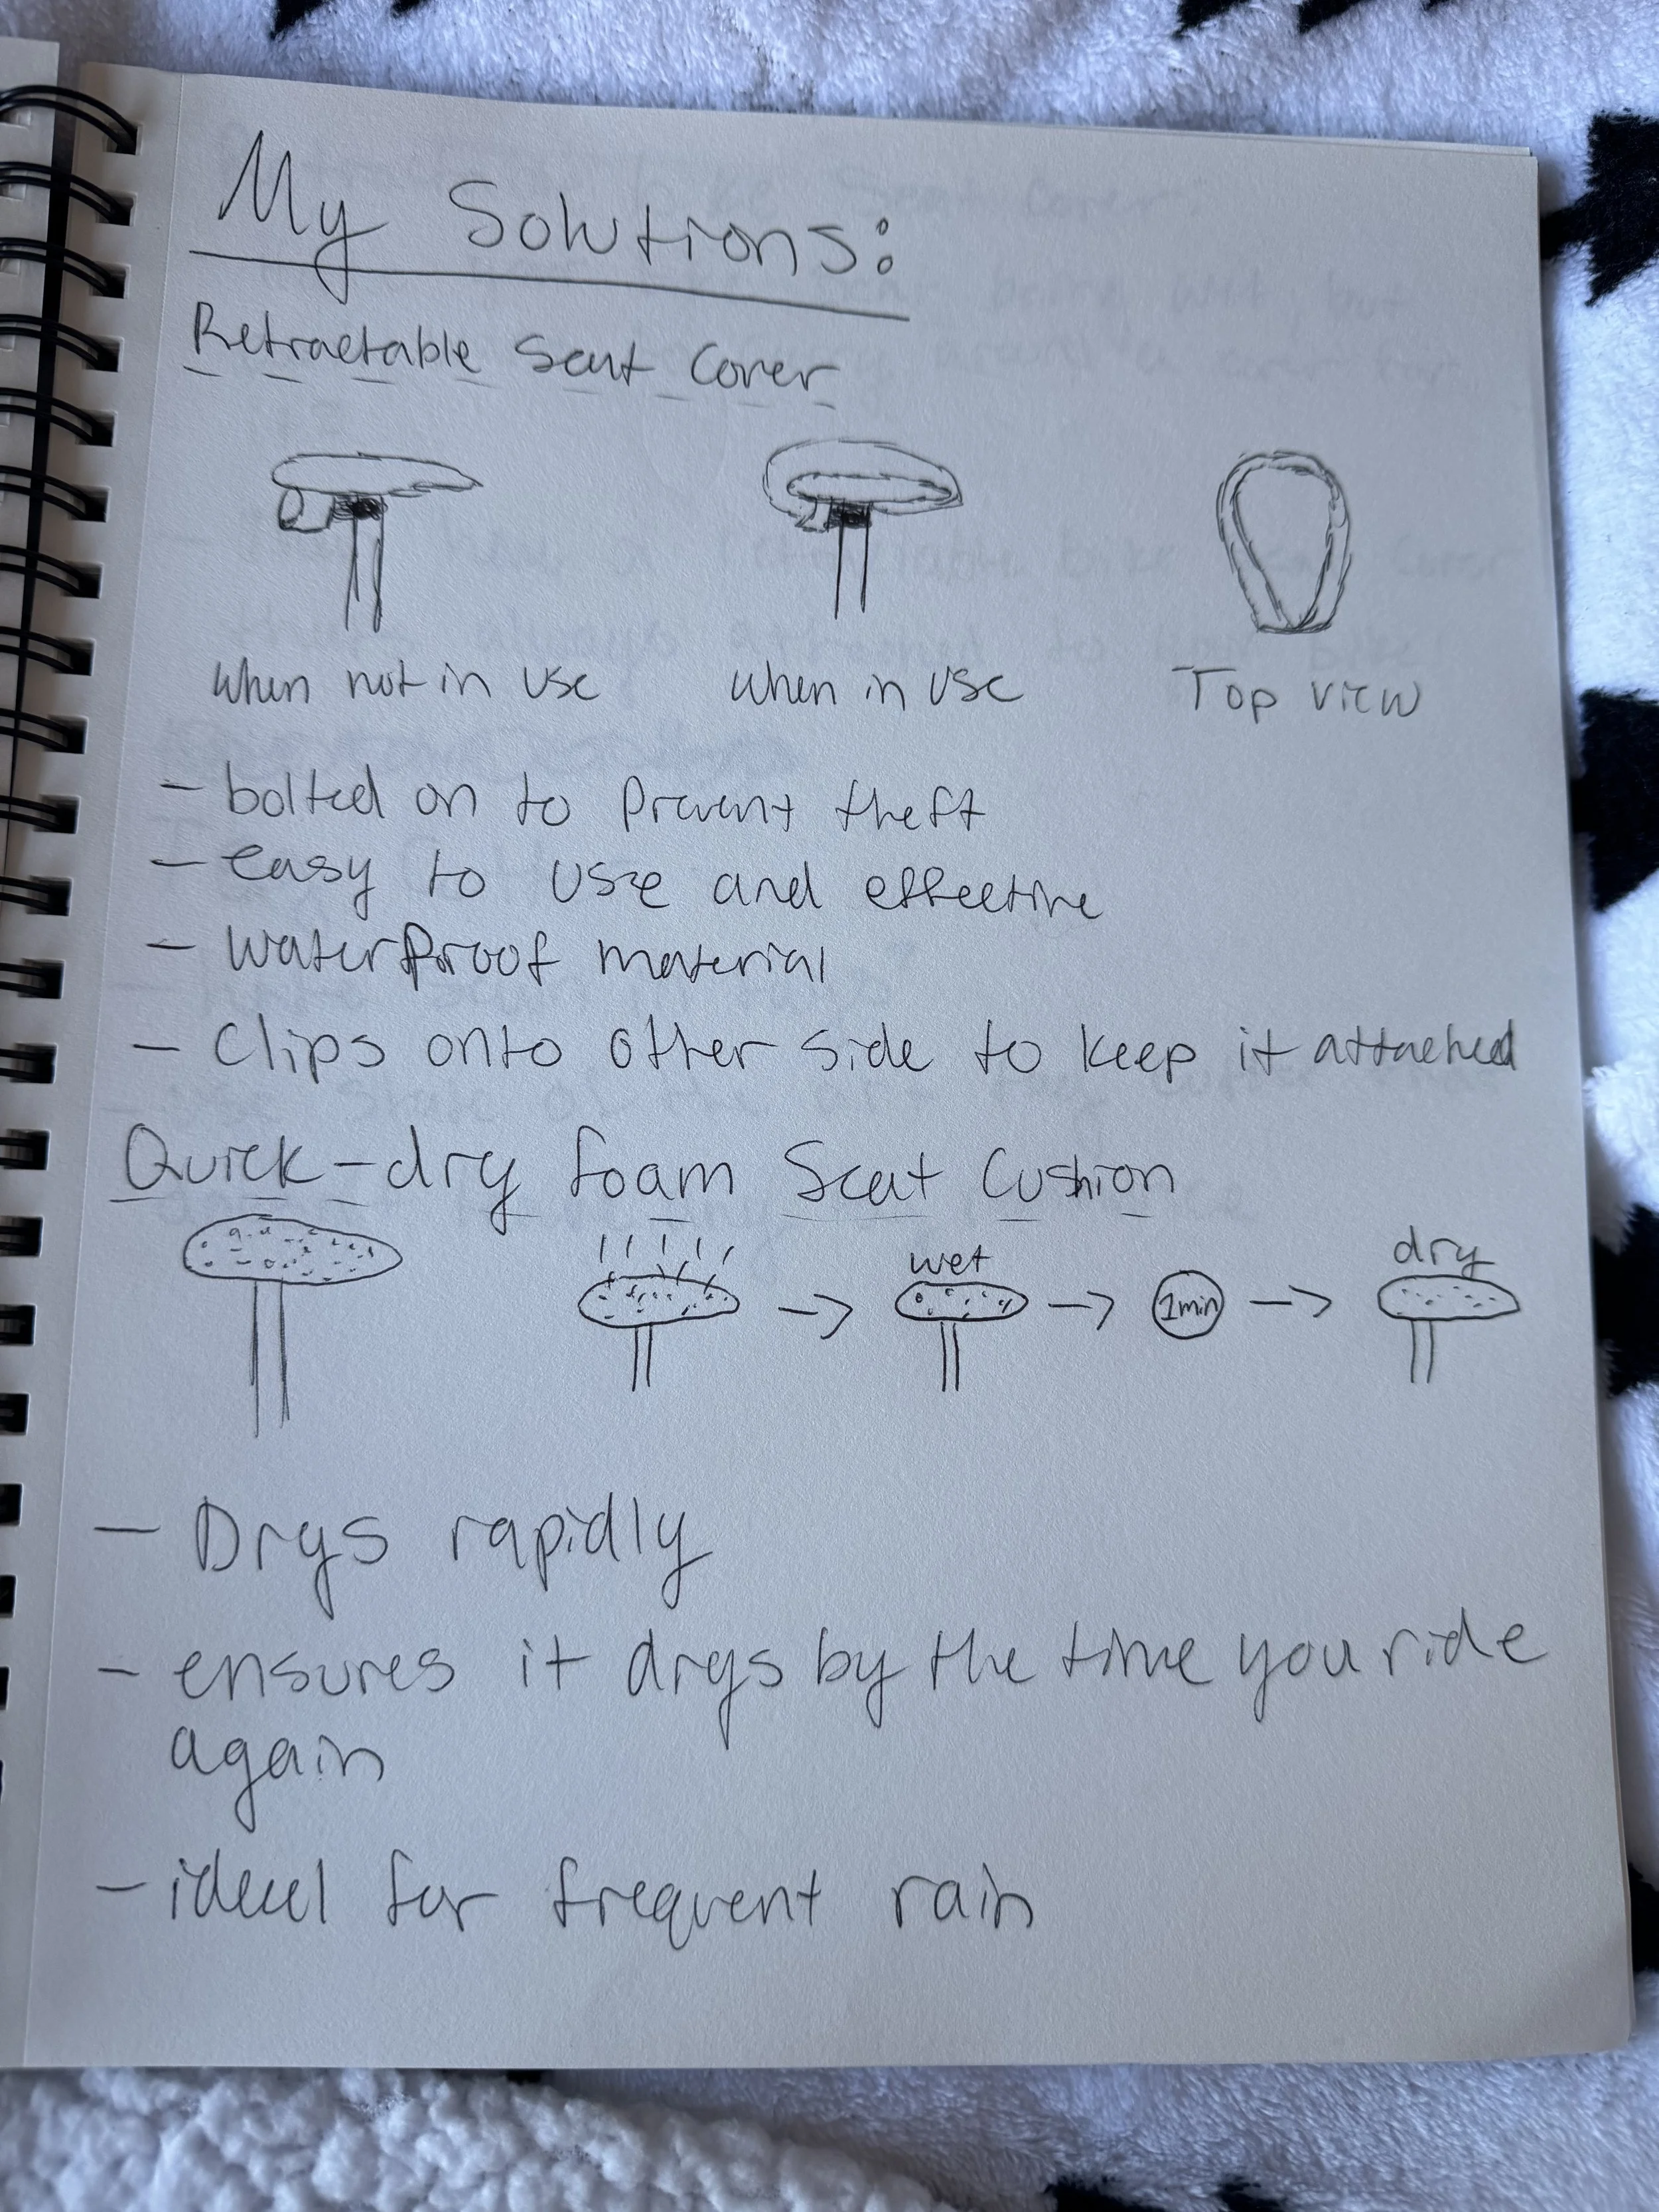 My Solutions:
Retractable Seat Cover
when not in use when in use Top view
- bolted on to prevent theft
- easy to use and effective
- waterproof material
- Clips onto other side to keep it attached
Quick-dry foam Seat Cushion
wet dry
1min
- Drys rapidly
- ensures it drys by the time you ride
again
- ideal for frequent rain